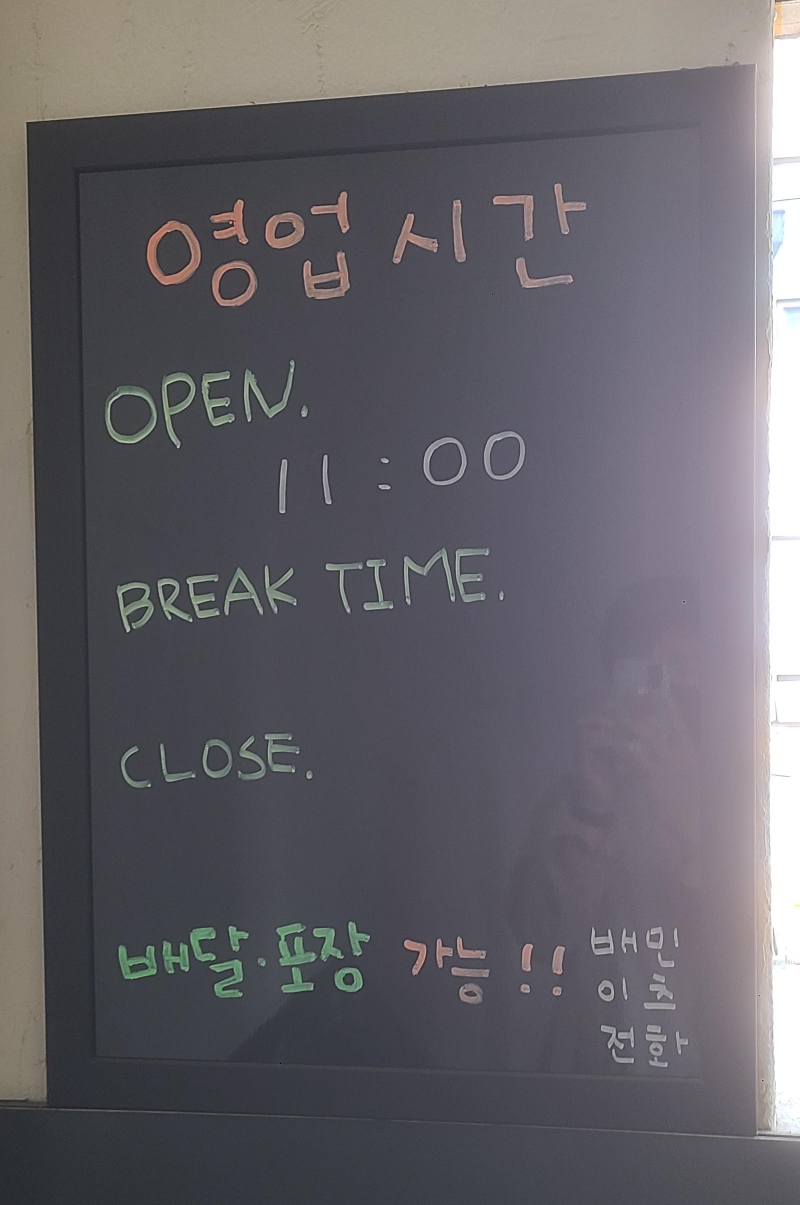 영업 시간
OPEN.
11:00
BREAK TIME.
CLOSE.
배달·포장 가능!!
배민
이츠
전화